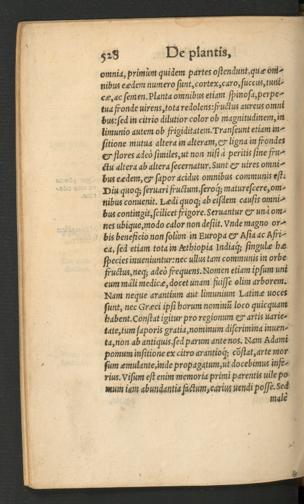 528 De plantis,
omnia, primùm quidem partes ostendunt, quæ om-
nibus eædem numero sunt, cortex, caro, succus, tuni-
cæ, ac semen. Planta omnibus etiam spinosa, perpe-
tua fronde uirens, tota redolens: fructus aureus omni
bus: sed in citrio dilutior color ob magnitudinem, in
limunio autem ob frigiditatem. Transeunt etiam in-
sitione mutua altera in alteram, & ligna in frondes
& flores adeò similes, ut non nisi à peritis sine fru-
ctu altera ab altera secernatur. Sunt & uires omni-
bus eædem, & sapor acidus omnibus communis est.
Diu quoq; seruari fructum, seroq; maturescere, om-
nibus conuenit. Lædi quoq; ab eisdem causis omni-
bus contingit, scilicet frigore. Seruantur & uni om-
nes ubique, modo calor non desiit. Vnde magno or-
bis beneficio non solùm in Europa & Asia ac Afri-
ca, sed etiam tota in Aethiopia Indiaq; singulæ hæ
species inueniuntur: nec ullus tam communis in orbe
fructus, neq; adeò frequens. Nomen etiam ipsum uni
eum mâli medicæ, docet unam fuisse olim arborem.
Nam neque arantium aut limunium Latinæ uoces
sunt, nec Græci ipsi horum nominū loco quicquam
habent. Constat igitur pro regionum & artis uarie-
tate, tum saporis gratia, nominum discrimina inuen-
ta, non ab antiquis, sed parum ante nos. Nam Adami
pomum insitione ex citro arantioq; cōstat, arte mor
sum æmulante, inde propagatum, ut docebimus infe-
rius. Visum est enim memoria primi parentis uile po
mum iam abundantia factum, carius uendi posse. Sed
malè